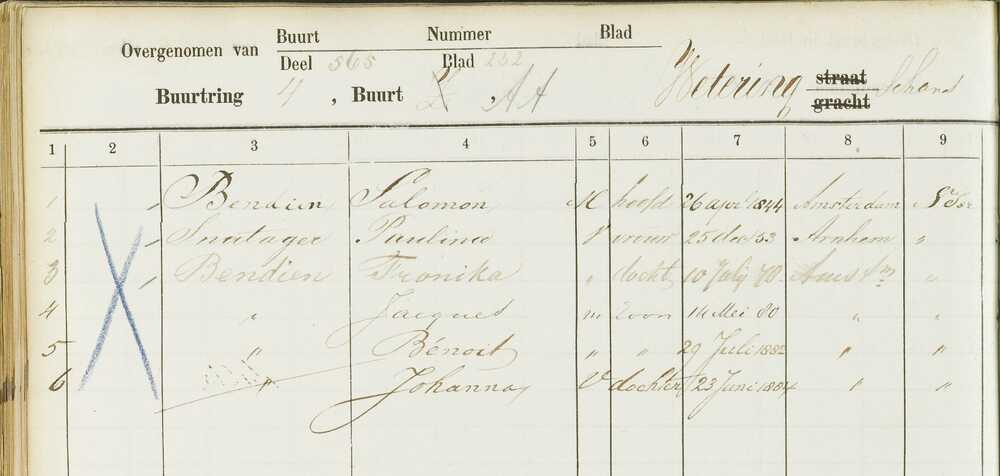 Overgenomen van Buurt Nummer Blad
Deel 565 Blad 232
Buurtring 4, Buurt Z, AA Wetering straat gracht Schans
1 2 3 4 5 6 7 8 9
1 Bendien Salomon M hoofd 26 apr 1844 Amsterdam N Isr
2 Snatager Paulina V vrouw 25 dec 53 Arnhem "
3 Bendien Fronika " docht 10 July 78 Amstm "
4 " Jacques m Zoon 14 Mei 80 " "
5 " Bénoit " " 29 Juli 1882 " "
6 " Johanna V dochter 23 Juni 1884 " "